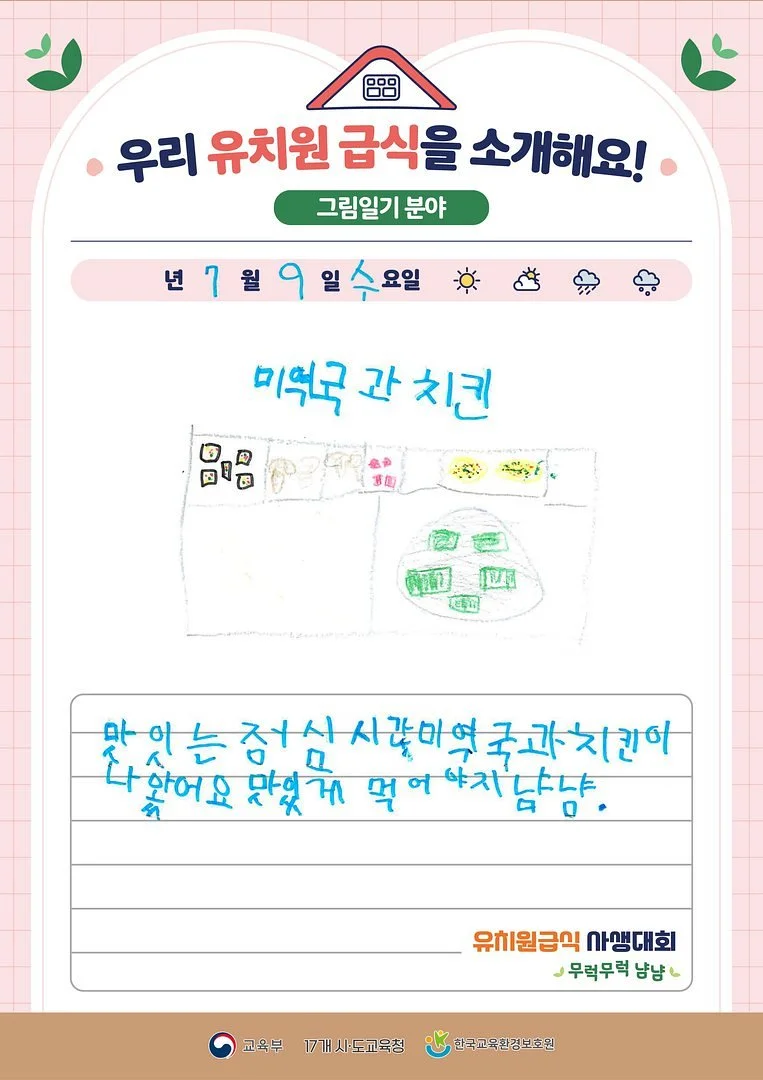 우리 유치원 급식을 소개해요!
그림일기 분야
년 7 월 9 일 수요일
미역국 과 치킨
맛 잇 는 점 심 시간 미역 국과 치킨이
나 왔어요 맛있게 먹 어 야지 냠냠.
유치원급식 사생대회
무럭무럭 냠냠
교육부 17개 시·도교육청 한국교육환경보호원